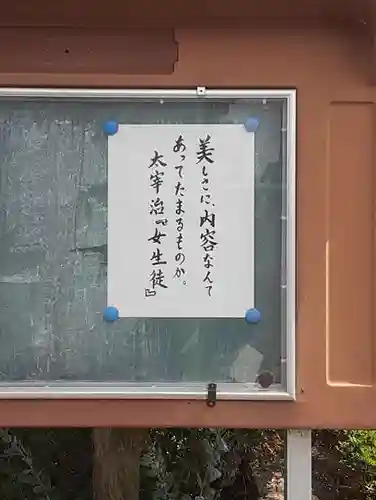 美しさに、内容なんて
あってたまるものか。
太宰治『女生徒』